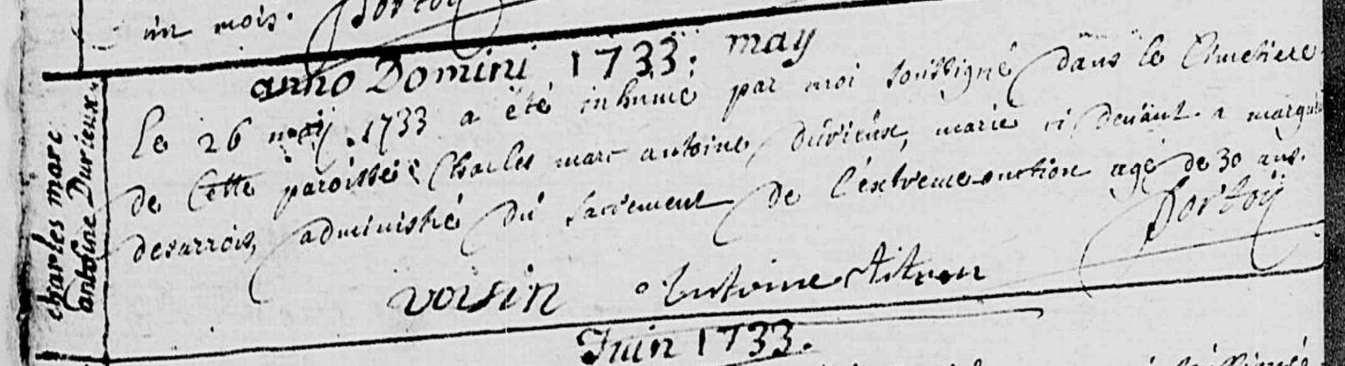 un mois.
anno Domini 1733. may
charles marc
antoine Durieux.
Le 26 may 1733 a été inhumé par moi soussigné dans le Cimetiere
de cette paroisse Charles marc antoine durieux, marié ci devant a margu
desarrois, administré du sacrement de l'extreme onction agé de 30 ans.
voisin Antoine
Juin 1733.